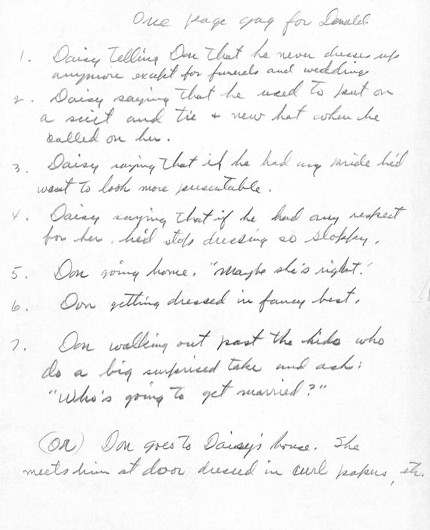 One page gag for Donald
1. Daisy telling Don that he never dresses up
anymore except for funerals and weddings
2. Daisy saying that he used to put on
a suit and tie + new hat when he
called on her.
3. Daisy saying that if he had any pride he'd
want to look more presentable.
4. Daisy saying that if he had any respect
for her, he'd stop dressing so sloppy.
5. Don going home. "Maybe she's right."
6. Don getting dressed in fancy best.
7. Don walking out past the kids who
do a big surprised take and ask:
"Who's going to get married?"
(OR) Don goes to Daisy's house. She
meets him at door dressed in curl papers, etc.